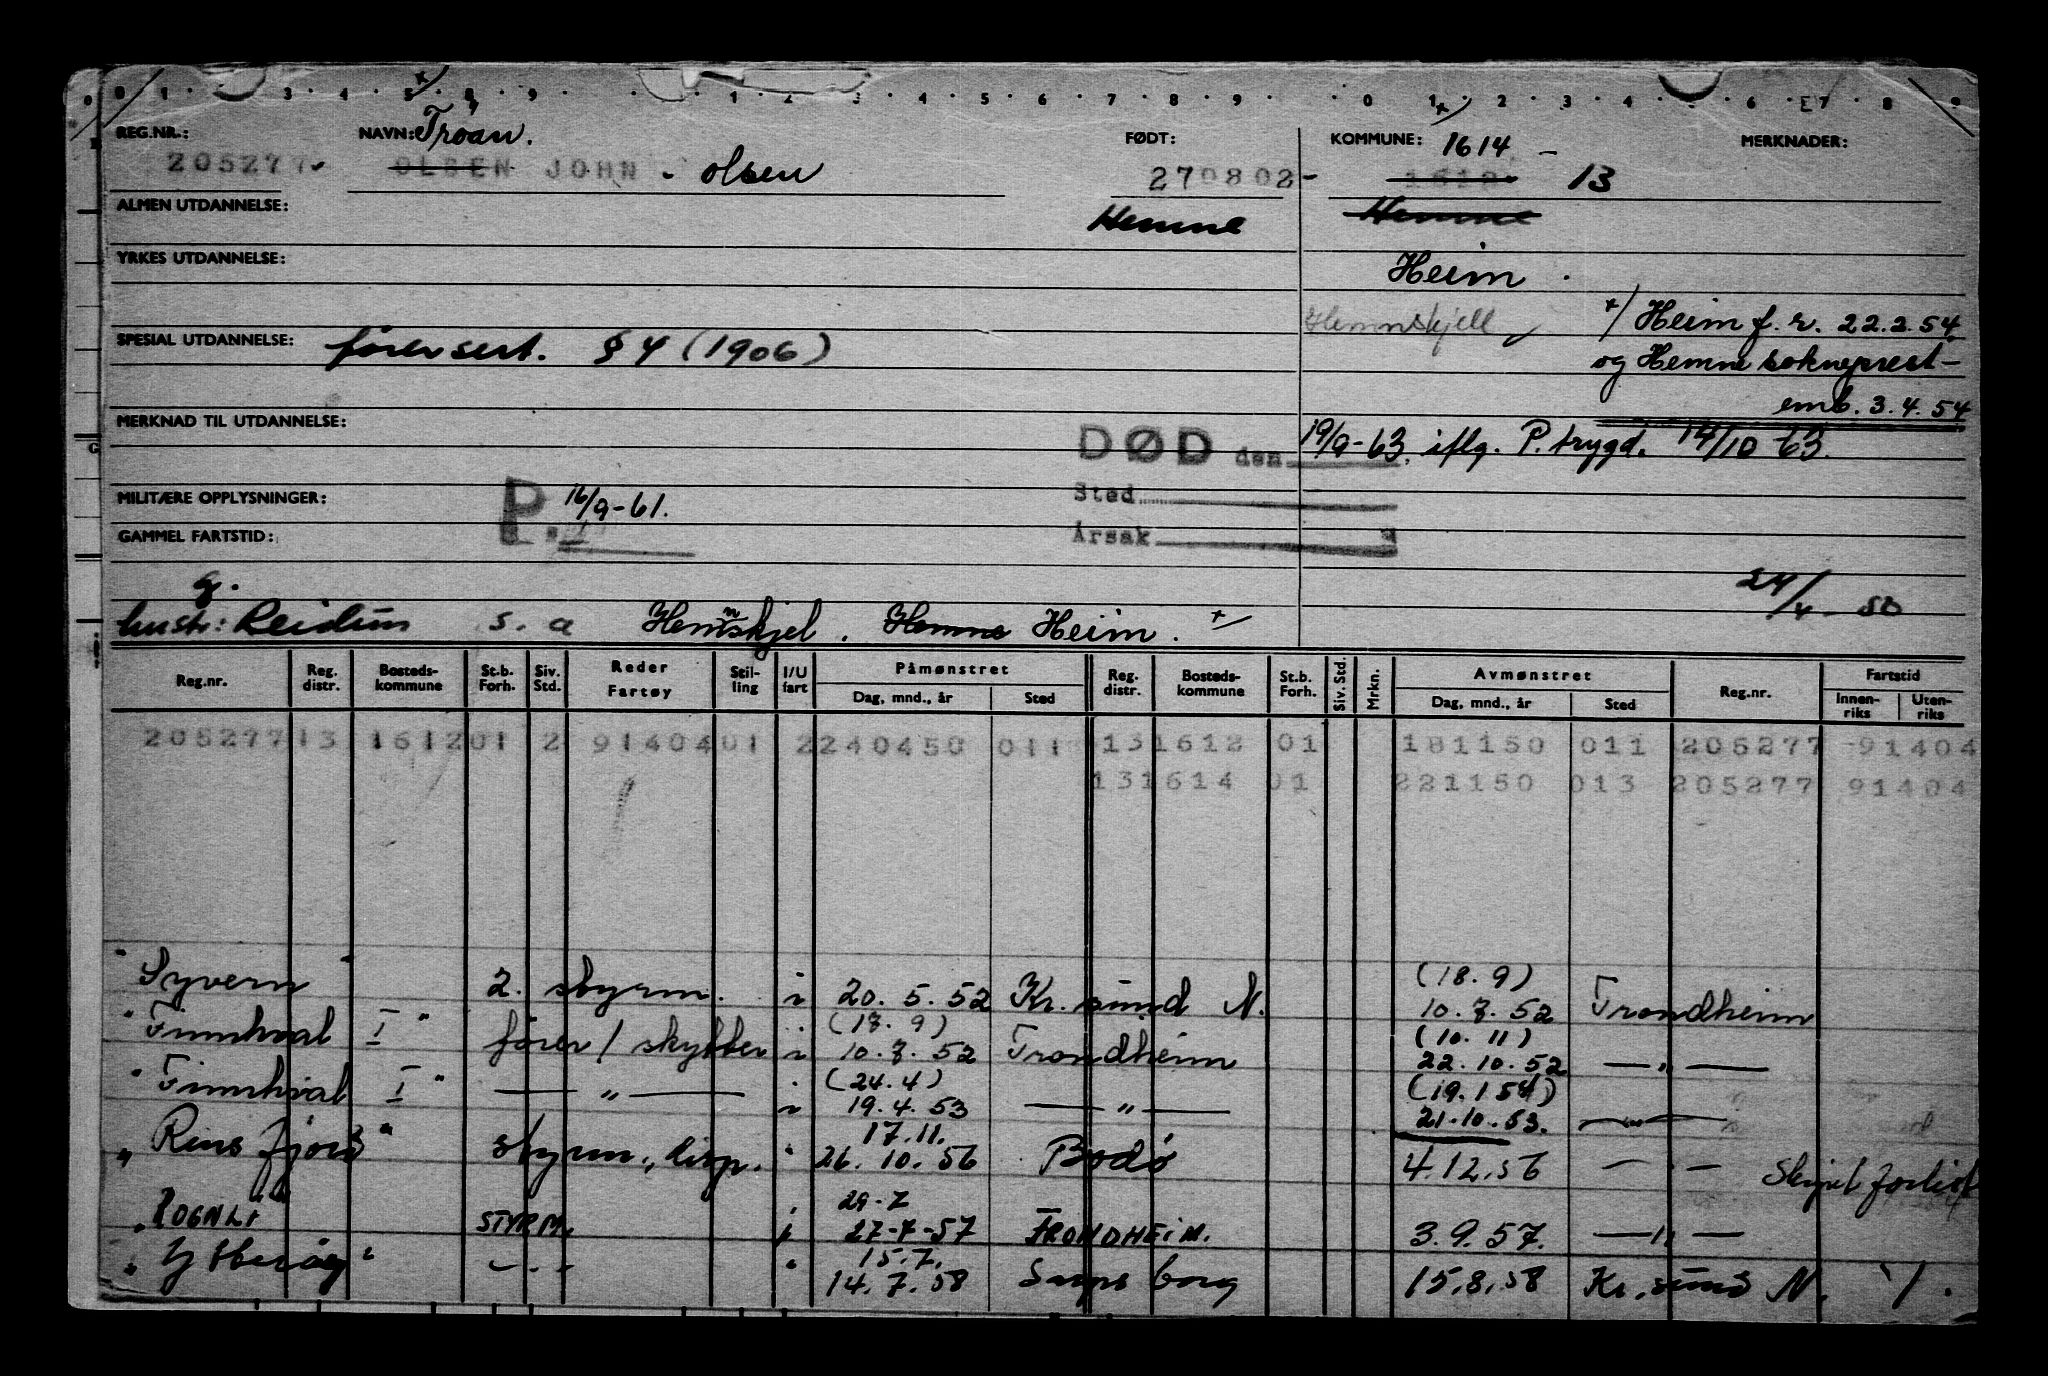 x/
0 1 · 3 · 4 · 5 · 8 · 9 · · · 1 · 2 · 3 · 4 · 5 · 6 · 7 · 8 · 9 · · 0 1 · 2 · 3 · 4 · · 6 · 7 · 8
REG.NR.: NAVN: Tröan. FØDT: KOMMUNE: 1614 – MERKNADER:
205277 OLSEN JOHN - olsen 270802- 1612 13
ALMEN UTDANNELSE: Hemne Hemne
YRKES UTDANNELSE: Heim .
Hemnskjell x/ Heim f. r. 22.2.54
SPESIAL UTDANNELSE: förersert. § 4 (1906) og Hemne sokneprest-
emb. 3.4.54
MERKNAD TIL UTDANNELSE: DØD den 19/9-63. iflg. P. trygd. 14/10-63.
MILITÆRE OPPLYSNINGER: P. 16/9-61. Sted
GAMMEL FARTSTID: Årsak
g. 24/4-50
hustr: Reidun s. a Hemnskjel. Hemne Heim. x/
Reg.nr. Reg. distr. Bosteds-kommune St.b. Forh. Siv. Std. Reder Fartøy Stil-ling I/U fart Påmønstret Dag, mnd., år Sted Reg. distr. Bosteds-kommune St.b. Forh. Siv. Std. Mrkn. Avmønstret Dag, mnd., år Sted Reg.nr. Fartstid Innen-riks Uten-riks
205277 13 1612 01 2 91404 01 2 240450 011 13 1612 01 181150 011 205277 91404
13 1614 01 221150 013 205277 91404
(18.9)
"Syvern" 2. styrm. i 20.5.52 Kr.sund N. 10.7.52 Trondheim
(18.9) (10.11)
"Finnhval I" förer/skytter i 10.7.52 Trondheim 22.10.52 —"—
(24.4) (19.1 54)
"Finnhval I" —"— i 19.4.53 —"— 21.10.53. —"—
17.11.
"Rinsfjord" styrm., disp. " 26.10.56 Bodö 4.12.56 —"— Skipet forlist
29.7
"ROGNLI STYRM. i 27-7-57 TRONDHEIM. 3.9.57. —"—
15.7.
"Ytteröy" —"— " 14.7.58 Sarpsborg 15.8.58 Kr.sund N.